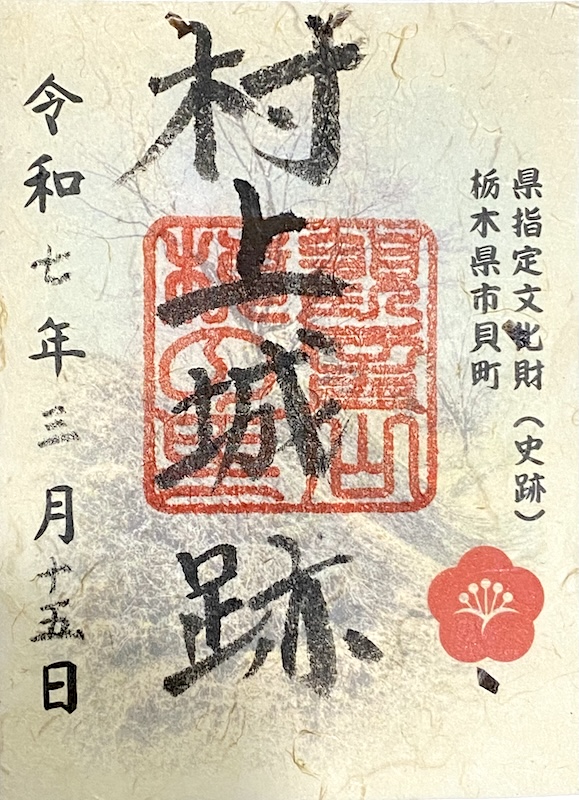 県指定文化財（史跡）
栃木県市貝町
村上城跡
観音山
梅の里
令和七年三月十五日